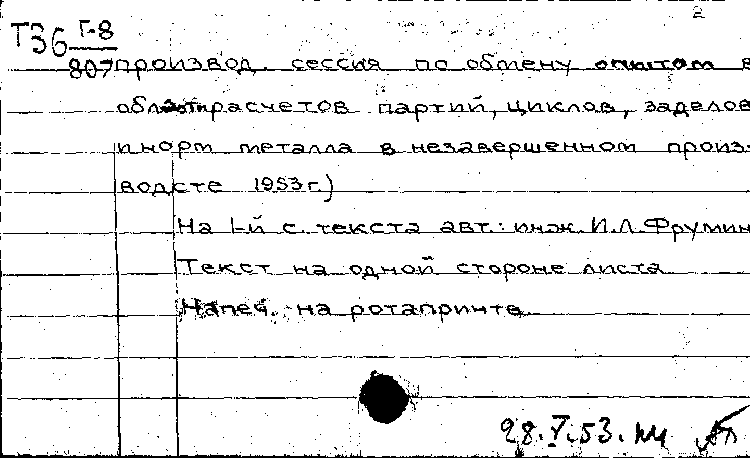 2
Т36 Г-8
807
производ. сессия по обмену опытом в
област расчетов партий, циклов, заделов
и норм металла в незавершенном произ-
водсте 1953 г.)
На 1-й с. текста авт.: инж. И.Л. Фрумин
Текст на одной стороне листа
Напеч. на ротапринте
28.V.53.